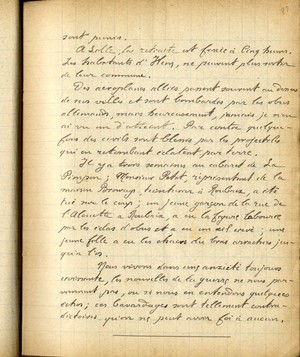 sont punis.
A Lille, la retraite est fixée à cinq heures.
Les habitants d'Hem, ne peuvent plus sortir
de leur commune.
Des aéroplanes alliés passent souvent au dessus
de nos villes et sont bombardés par les obus
allemands, mais heureusement, jamais je n'en
ai vu un d'atteint. Par contre quelque-
fois des civils sont blessés par les projectiles
qui en retombant éclatent par terre.
Il y a trois semaines au cabaret de La
Monsieur Petit, représentant de la
maison teinturier à Roubaix, a été
tué sur le coup; un jeune garçon de la rue de
l'Alouette à Roubaix, a eu la figure labourée
par les éclats d'obus et a eu un œil crevé; une
jeune fille a eu les chairs du bras arrachées jus-
qu'à l'os.
Nous vivons dans une anxiété toujours
croissante, les nouvelles de la guerre ne nous par-
viennent pas, ou si nous en entendons quelques
échos; ces bavardages sont tellement contra-
dictoires qu'on ne peut avoir foi à aucun.